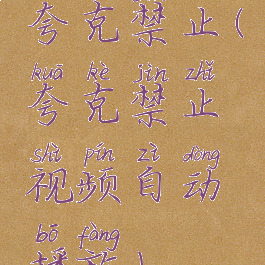 夸克禁止(
kuā kè jìn zhǐ
夸克禁止
shì pín zì dòng
视频自动
bō fàng
播放)